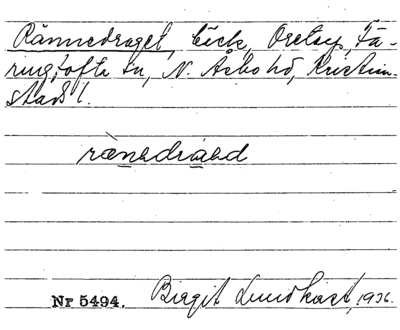 Rännedraget, bäck, Oretorp, Fä-
ringtofta sn, N. Åsbo hd, Kristian-
stads l.
Nr 5494. Birgit Lundkvist, 1936.